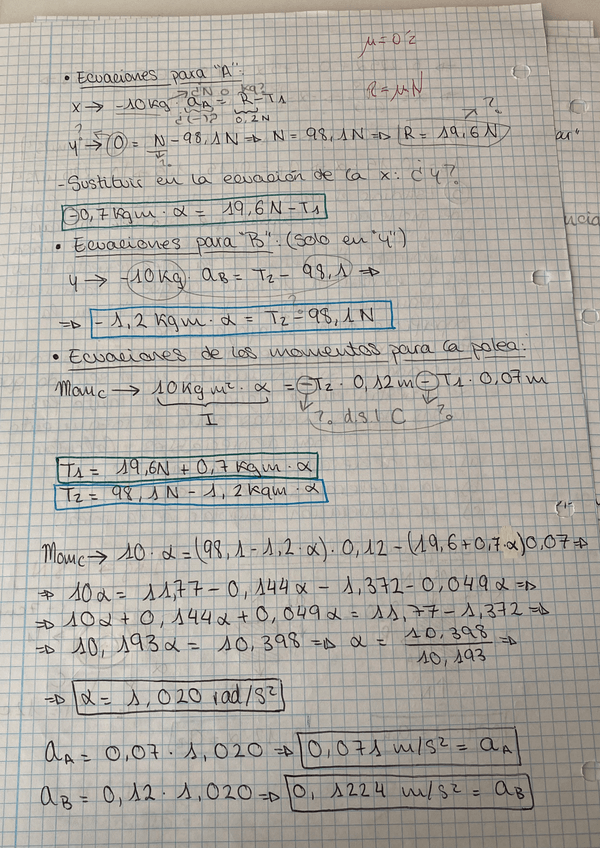 μ=0'2
• Ecuaciones para "A":
¿N o kg?
R=μN
x → -10kg · aA = R-T1
¿(-)? 0,2N
y → 0 = N - 98,1N ⇒ N = 98,1N ⇒ R = 19,6N
?
- Sustituir en la ecuación de la x: ¿y?
-0,7 kgm · α = 19,6N - T1
• Ecuaciones para "B": (solo en "y")
y → -10kg · aB = T2 - 98,1 ⇒
⇒ -1,2 kgm · α = T2 - 98,1N
• Ecuaciones de los momentos para la polea:
Momc → 10kgm² · α = -T2 · 0,12m - T1 · 0,07m
I
T1 = 19,6N + 0,7 kgm · α
T2 = 98,1N - 1,2 kgm · α
Momc → 10 · α = (98,1 - 1,2 · α) · 0,12 - (19,6 + 0,7 · α) 0,07 ⇒
⇒ 10α = 11,77 - 0,144α - 1,372 - 0,049α ⇒
⇒ 10α + 0,144α + 0,049α = 11,77 - 1,372 ⇒
⇒ 10,193α = 10,398 ⇒ α = 10,398 / 10,193 ⇒
⇒ α = 1,020 rad/s²
aA = 0,07 · 1,020 ⇒ 0,071 m/s² = aA
aB = 0,12 · 1,020 ⇒ 0,1224 m/s² = aB